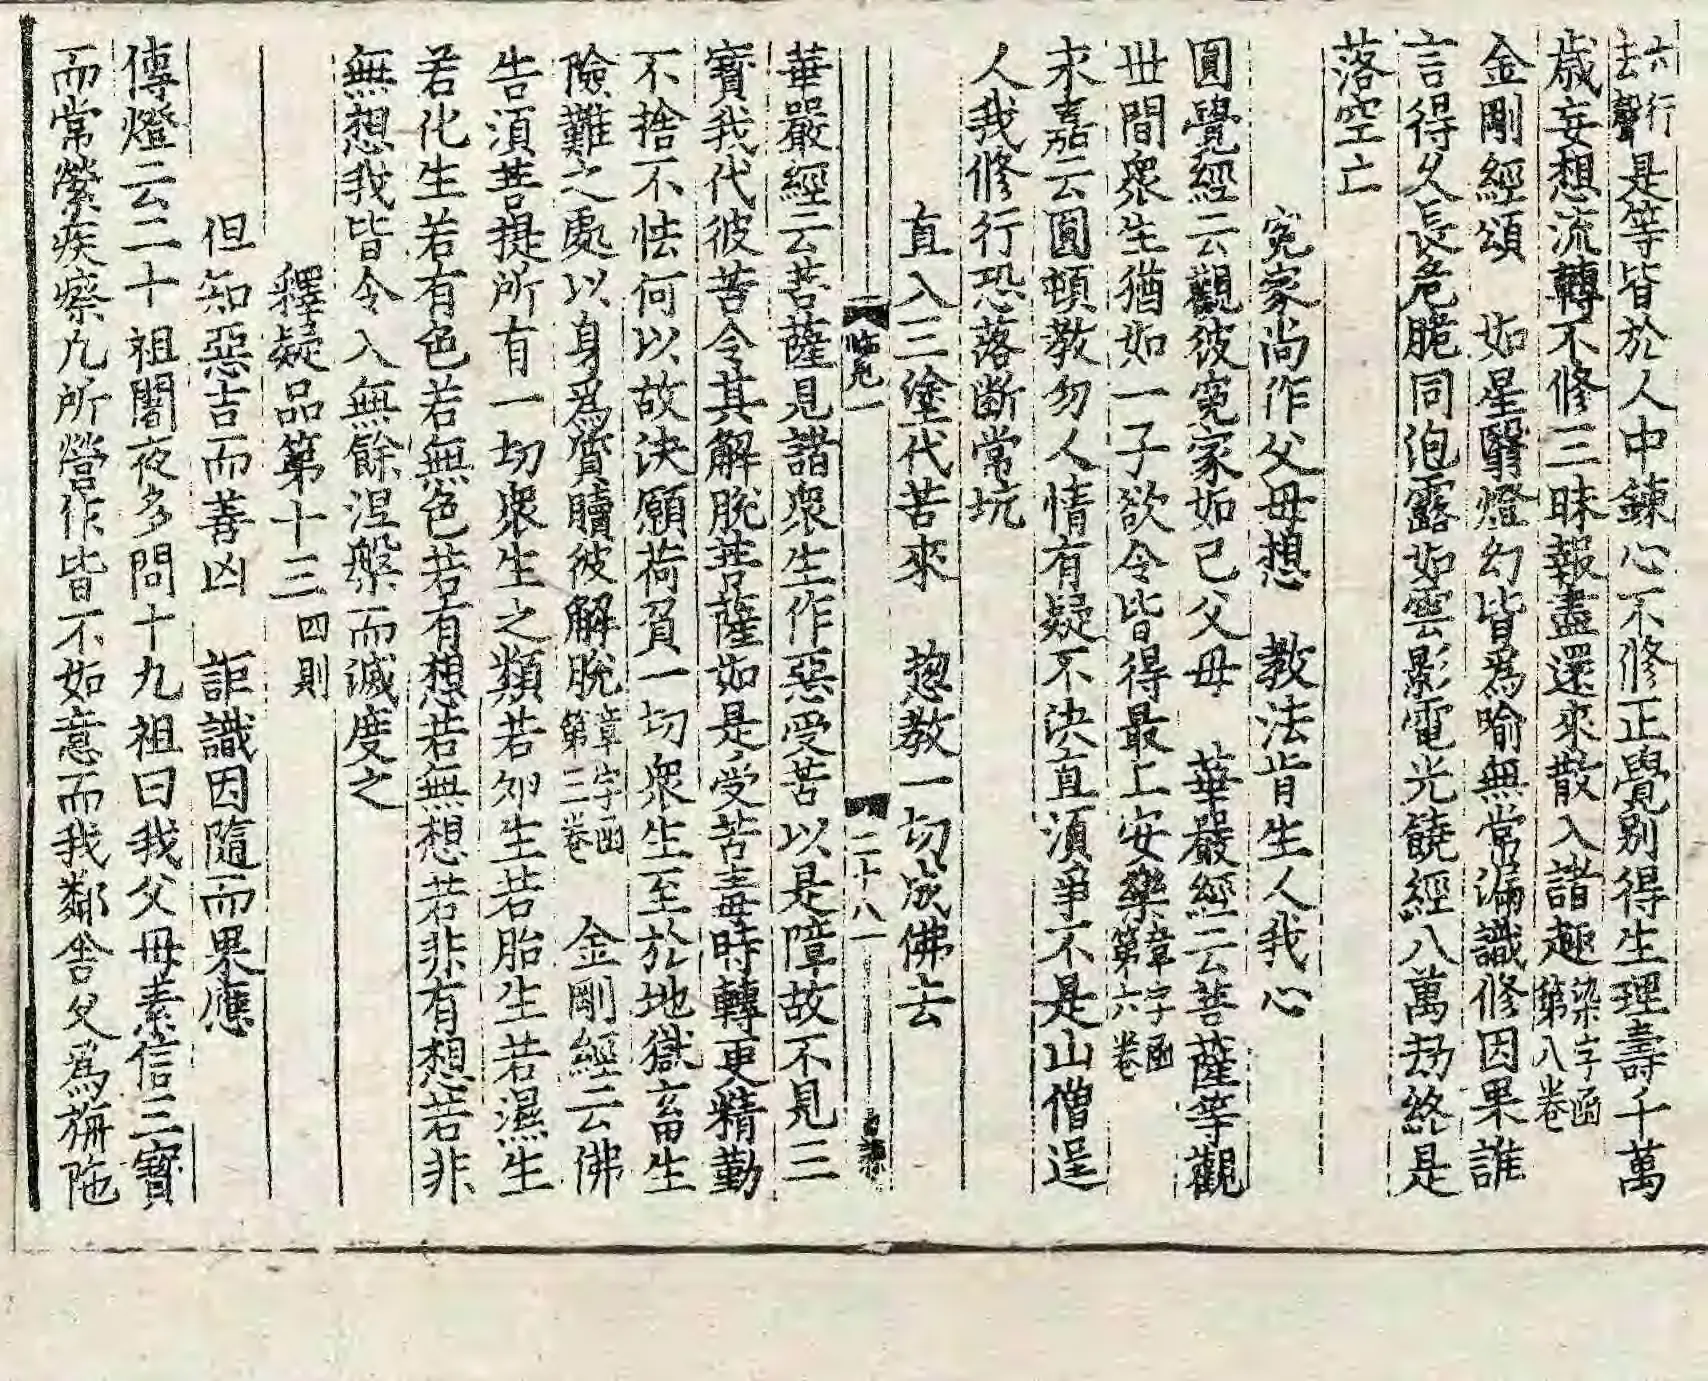 六行去聲是等皆於人中鍊心不修正覺別得生理壽千萬
歳妄想流轉不修三昧報盡還來散入諸趣染字函第八卷
金剛經頌　如星翳燈幻皆爲喻無常漏識修因果誰
言得久長危脆同泡露如雲影電光饒經八萬劫終是
落空亡
冤家尚作父母想　教法肯生人我心
圓覺經云觀彼冤家如己父母　華嚴經云菩薩等觀
世間衆生猶如一子欲令皆得最上安樂章字函第六卷
永嘉云圓頓教勿人情有疑不決直須爭不是山僧逞
人我修行恐落斷常坑
直入三塗代苦來　揔教一切成佛去
二十八
華嚴經云菩薩見諸衆生作惡受苦以是障故不見三
寳我代彼苦令其解脫菩薩如是受苦毒時轉更精勤
不捨不怯何以故決願荷負一切衆生至於地獄畜生
險難之處以身爲質贖彼解脫章字函第三卷　金剛經云佛
告須菩提所有一切衆生之類若卵生若胎生若濕生
若化生若有色若無色若有想若無想若非有想若非
無想我皆令入無餘涅槃而滅度之
釋疑品第十三四則
但知惡吉而善凶　詎識因隨而果應
傳燈云二十祖闍夜多問十九祖曰我父母素信三寳
而常縈疾瘵凡所營作皆不如意而我鄰舍久爲旃陁